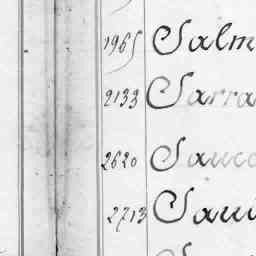 1965 Salm
2133 Sarra
2620 Sauco
2713 Saui